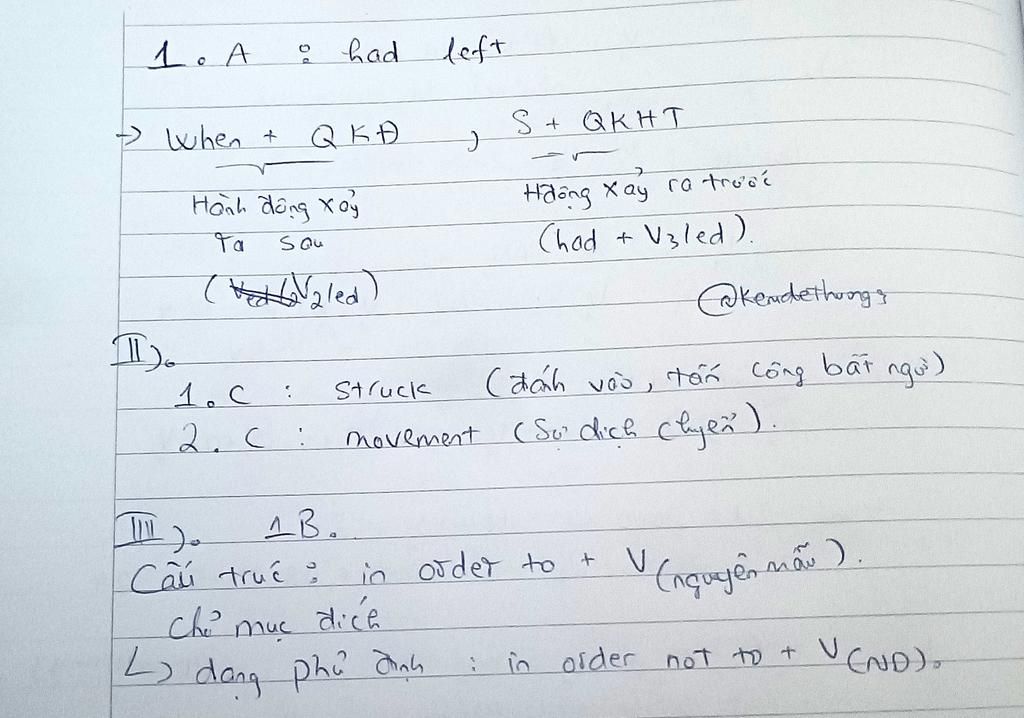 1. A : had left
→ When + QKĐ , S + QKHT
Hành động xảy Hđộng xảy ra trước
ra sau (had + V3/ed).
(V2/ed)
II).
1. C : struck (đánh vào, tấn công bất ngờ)
2. C : movement (Sự dịch chuyển).
III). 1B.
Cấu trúc : in order to + V (nguyên mẫu).
chỉ mục đích
↳ dạng phủ định : in order not to + V